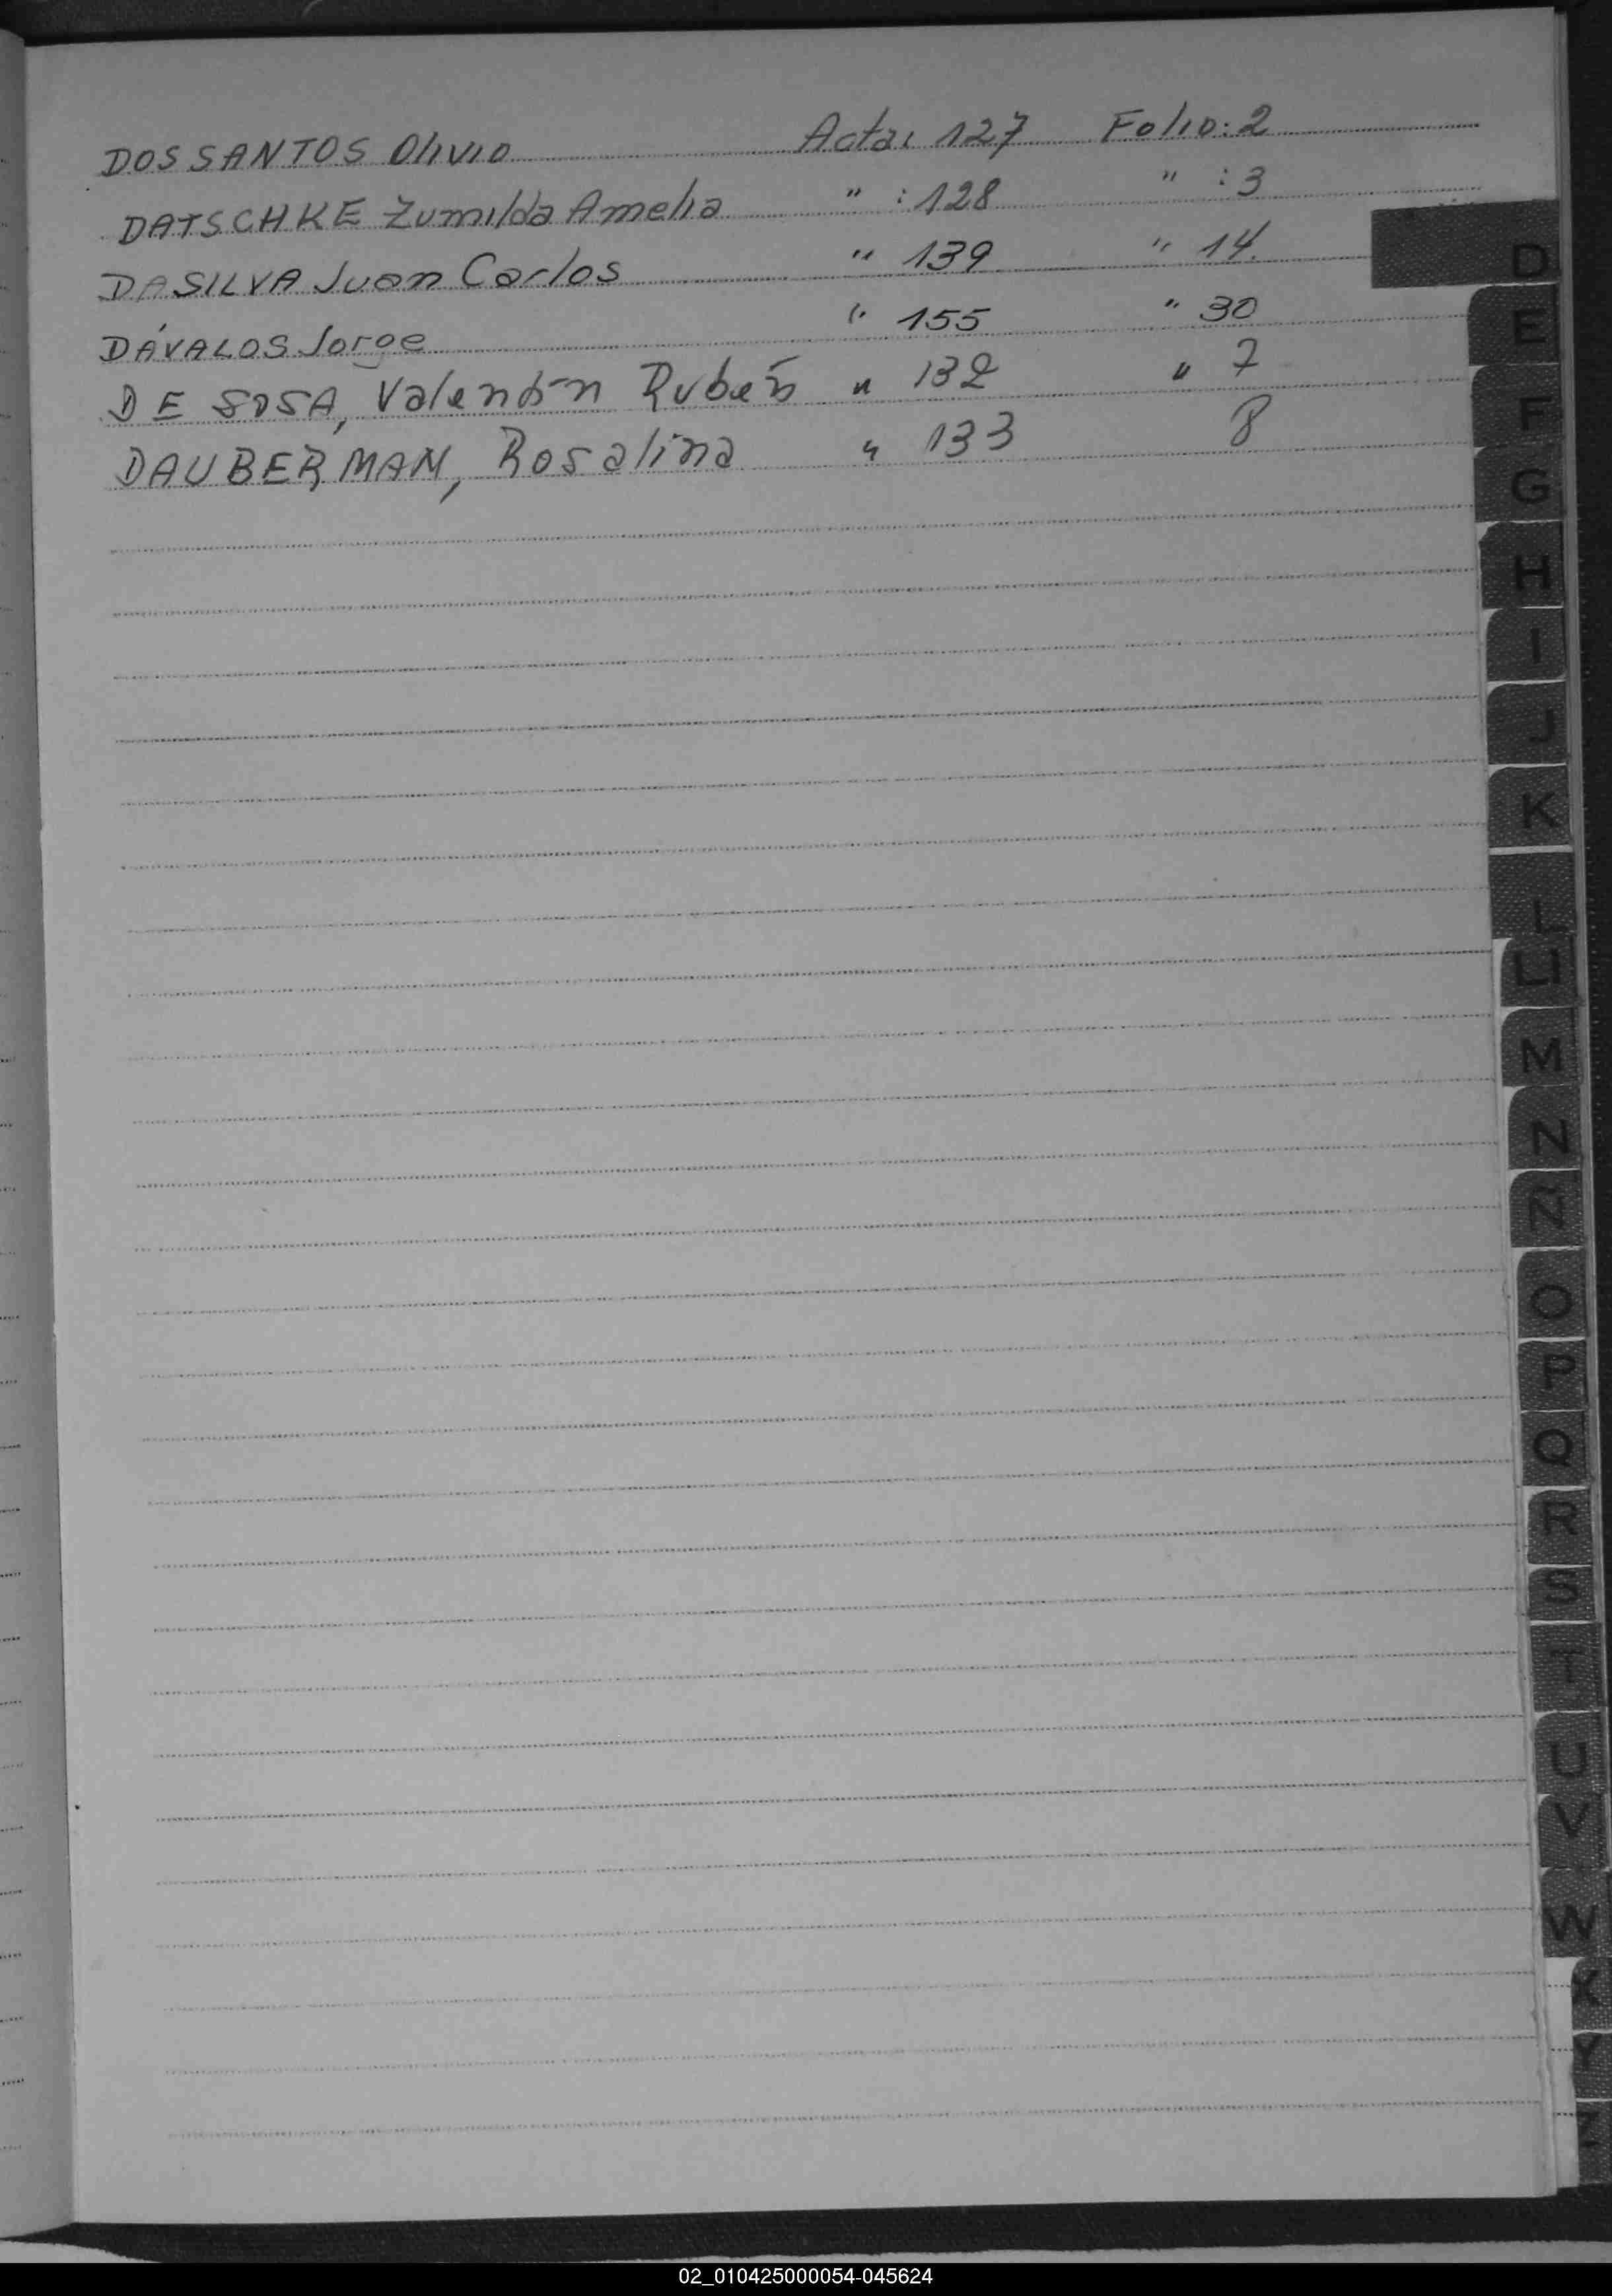 DOS SANTOS Olivio Acta: 127 Folio: 2
DATSCHKE Zumilda Amelia " : 128 " : 3
DASILVA Juan Carlos " 139 " 14.
DÁVALOS Jorge " 155 " 30
DE SOSA, Valentín Rubén " 132 " 7
DAUBERMAN, Rosalina " 133 8
D
E
F
G
H
I
J
K
L
LL
M
N
Ñ
O
P
Q
R
S
T
U
V
W
X
Y
Z
02_010425000054-045624